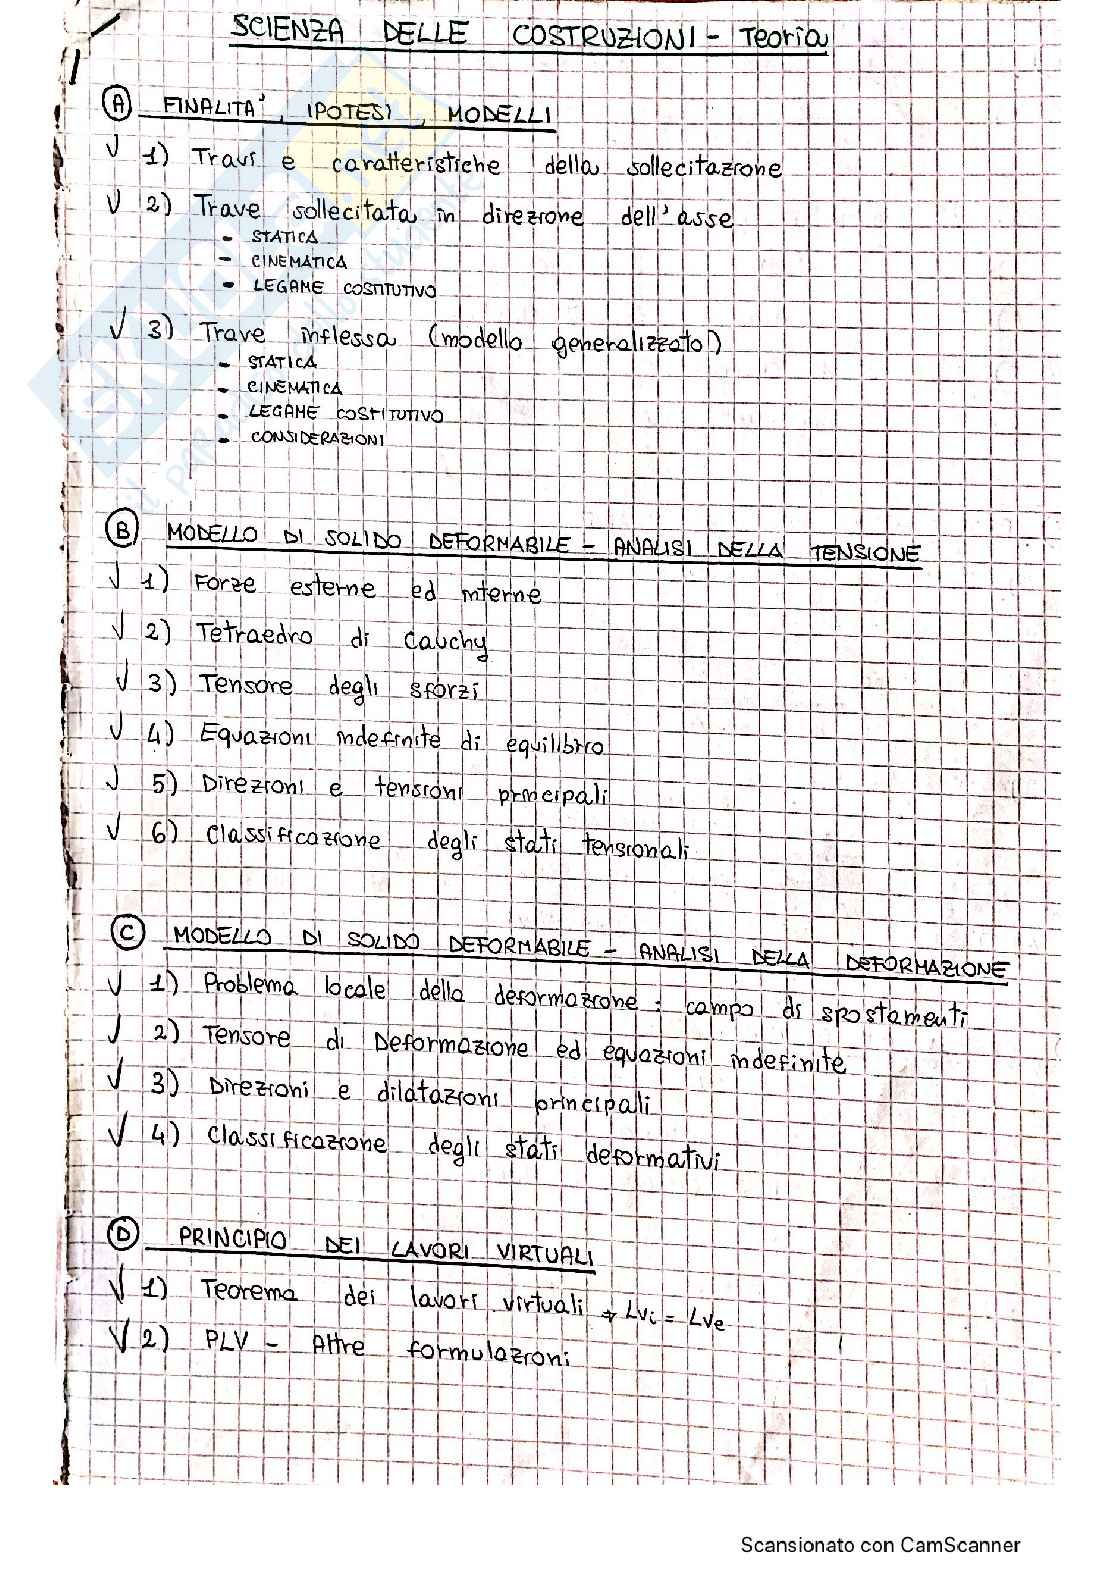 SCIENZA DELLE COSTRUZIONI - Teoria
A FINALITA', IPOTESI, MODELLI
1) Travi e caratteristiche della sollecitazione
2) Trave sollecitata in direzione dell'asse
- STATICA
- CINEMATICA
- LEGAME COSTITUTIVO
3) Trave inflessa (modello generalizzato)
- STATICA
- CINEMATICA
- LEGAME COSTITUTIVO
- CONSIDERAZIONI
B MODELLO DI SOLIDO DEFORMABILE - ANALISI DELLA TENSIONE
1) Forze esterne ed interne
2) Tetraedro di Cauchy
3) Tensore degli sforzi
4) Equazioni indefinite di equilibrio
5) Direzioni e tensioni principali
6) Classificazione degli stati tensionali
C MODELLO DI SOLIDO DEFORMABILE - ANALISI DELLA DEFORMAZIONE
1) Problema locale della deformazione: campo di spostamenti
2) Tensore di Deformazione ed equazioni indefinite
3) Direzioni e dilatazioni principali
4) Classificazione degli stati deformativi
D PRINCIPIO DEI LAVORI VIRTUALI
1) Teorema dei lavori virtuali → Lvi = Lve
2) PLV - Altre formulazioni
Scansionato con CamScanner